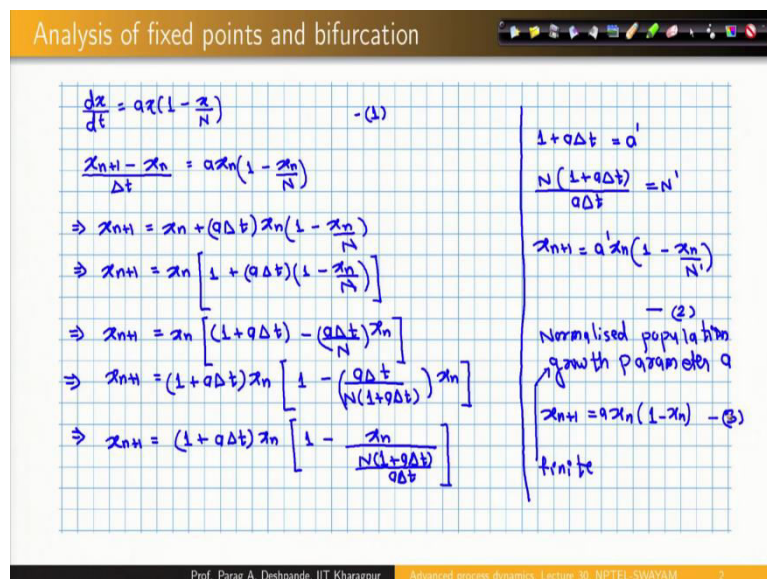 Analysis of fixed points and bifurcation
dx/dt = ax(1 - x/N) -(1)
(xn+1 - xn)/Δt = axn(1 - xn/N)
⇒ xn+1 = xn + (aΔt) xn(1 - xn/N)
⇒ xn+1 = xn [1 + (aΔt)(1 - xn/N)]
⇒ xn+1 = xn [(1+aΔt) - (aΔt/N)xn]
⇒ xn+1 = (1+aΔt)xn [1 - (aΔt/N(1+aΔt)) xn]
⇒ xn+1 = (1+aΔt)xn [1 - xn/(N(1+aΔt)/aΔt)]
1+aΔt = a'
N(1+aΔt)/aΔt = N'
xn+1 = a'xn(1 - xn/N')
- (2)
Normalised population
growth parameter a
xn+1 = axn(1-xn) -(3)
finite
Prof. Parag A. Deshpande, IIT Kharagpur
Advanced process dynamics, Lecture 30, NPTEL-SWAYAM
2